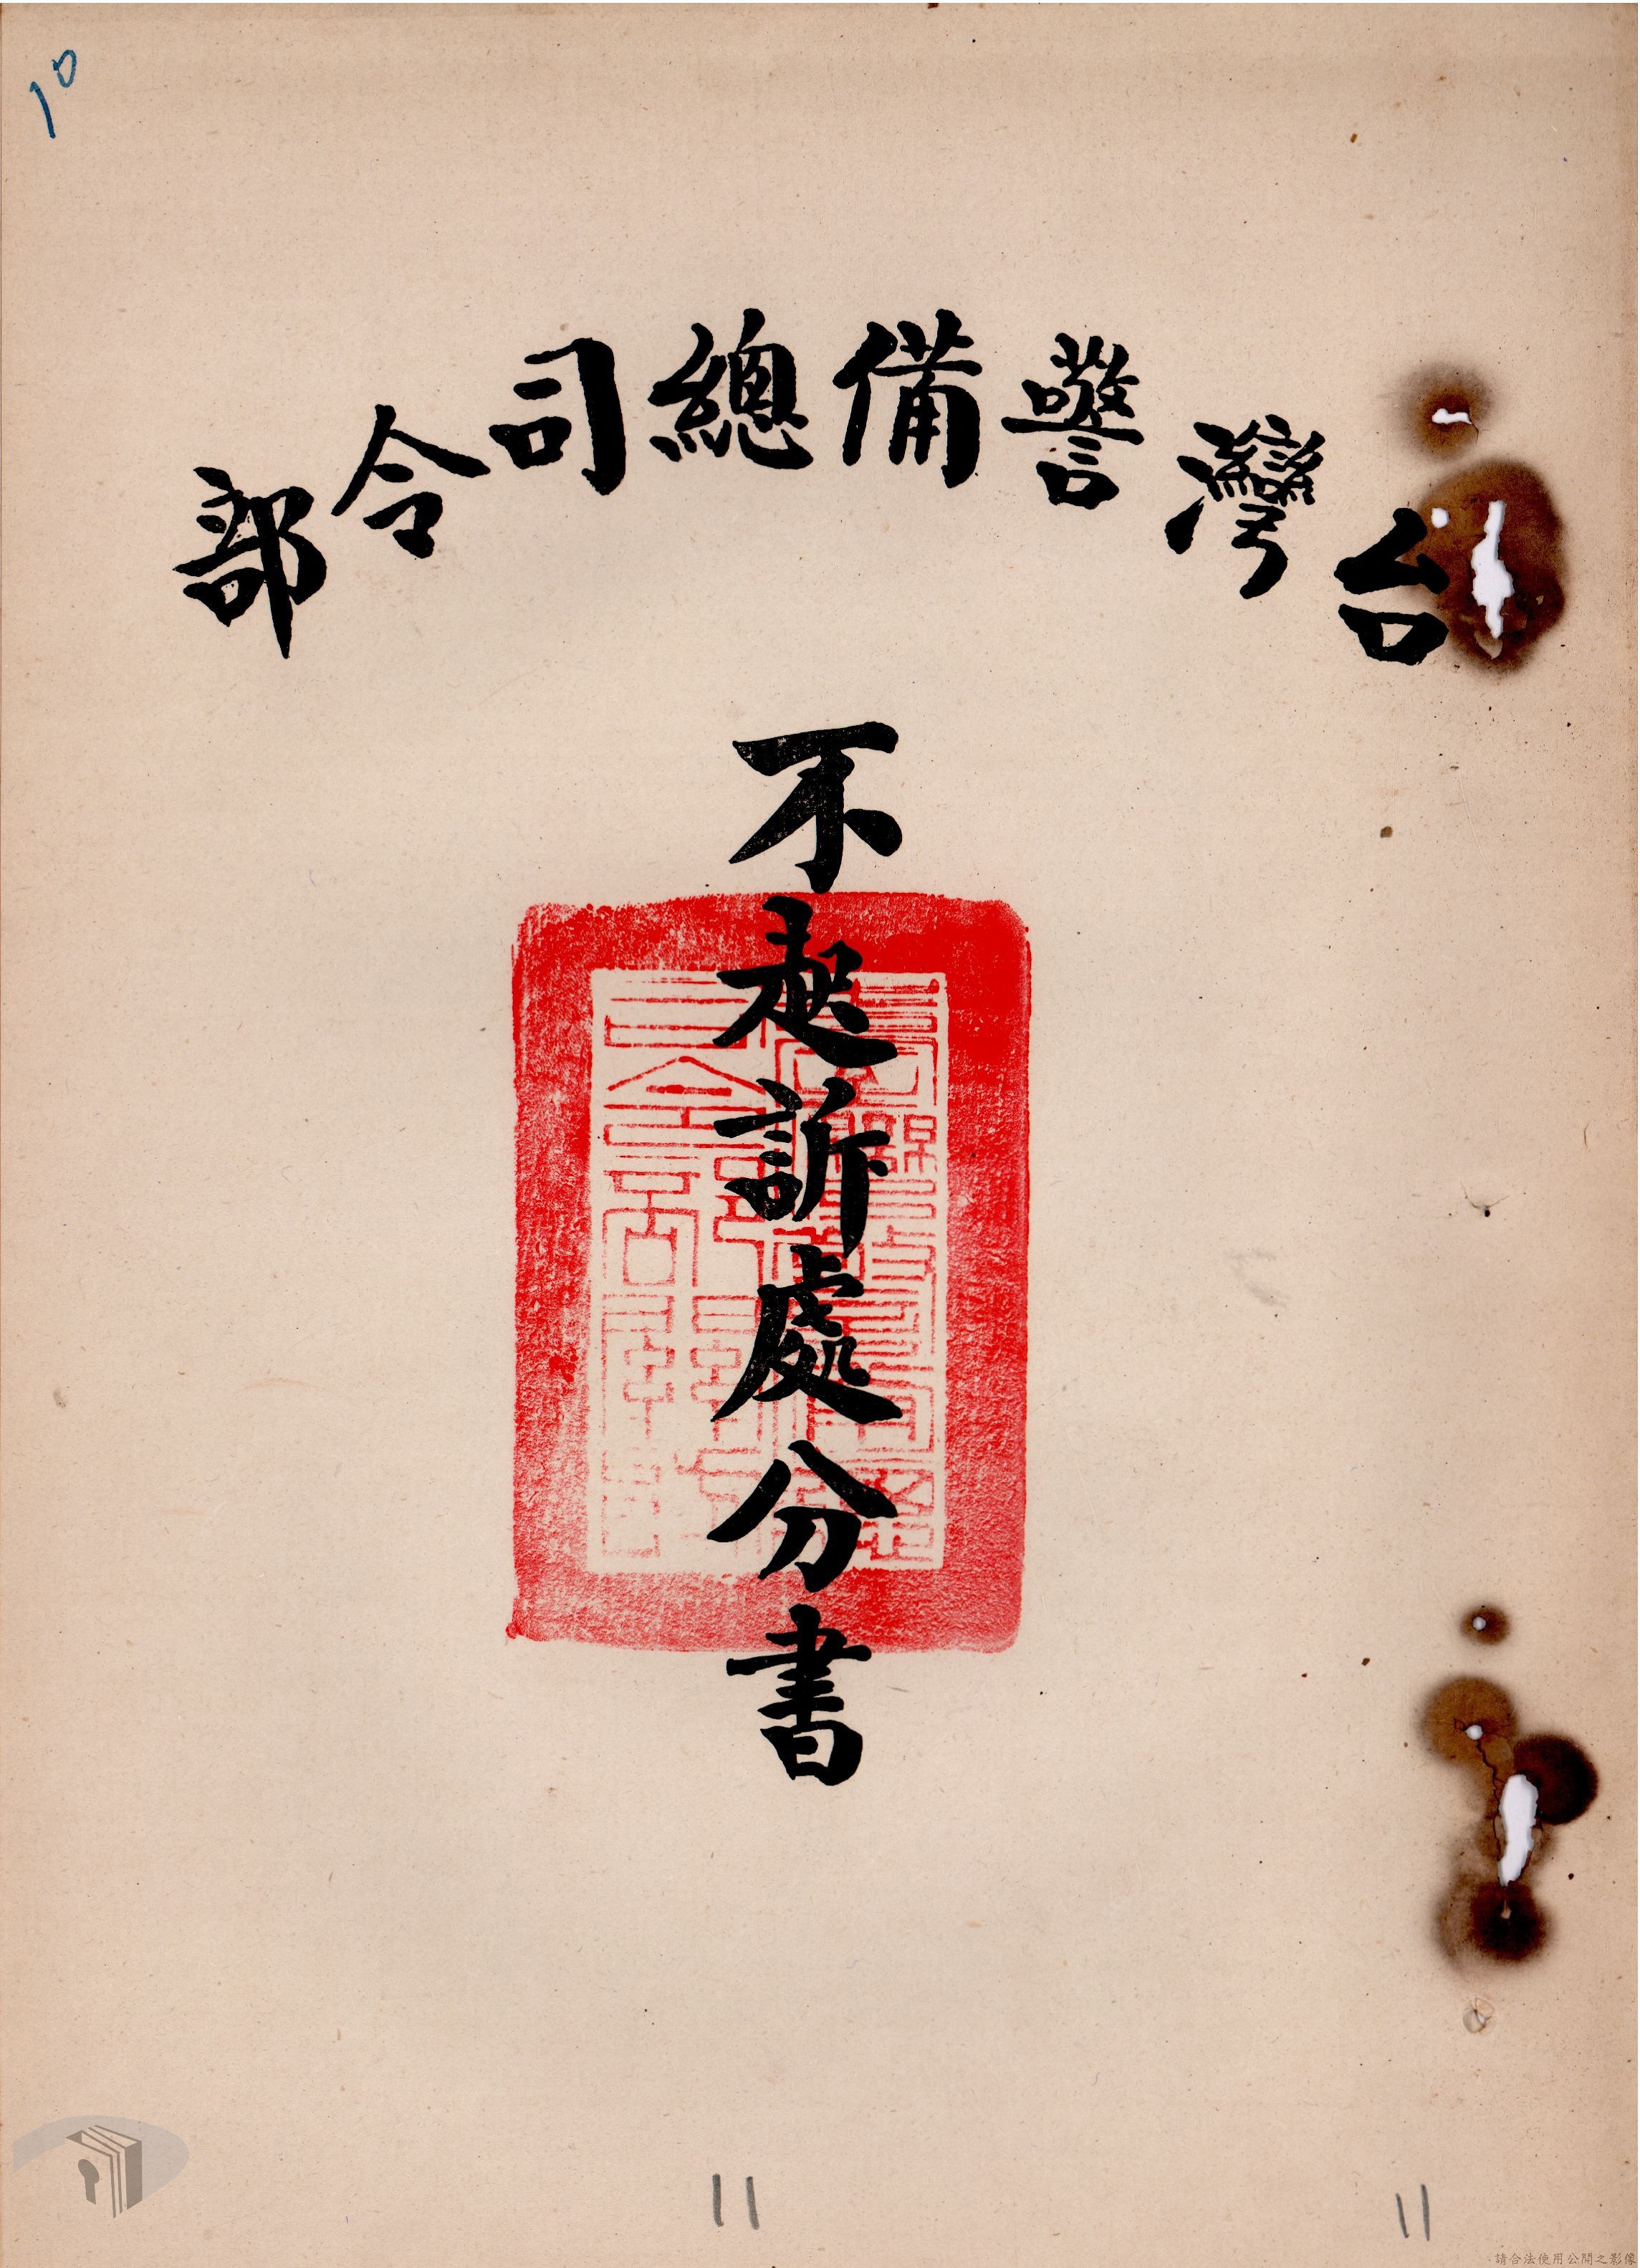 10
台灣警備總司令部
不起訴處分書
11
11
請合法使用公開之影像